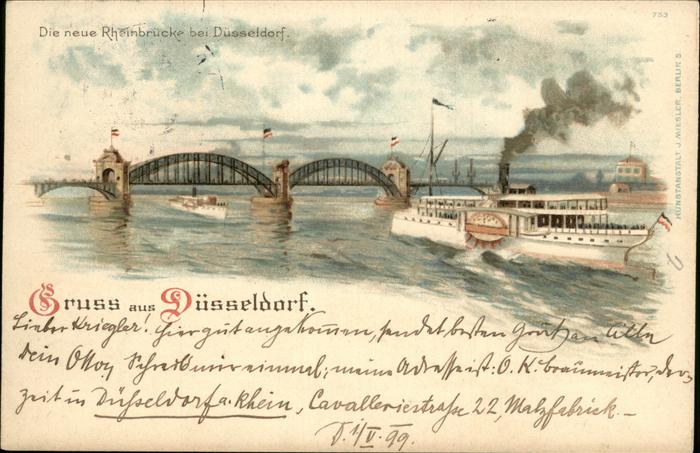 Die neue Rheinbrücke bei Düsseldorf.
753
KUNSTANSTALT J. MIESLER, BERLIN S
Gruss aus Düsseldorf.
Lieber Kriegler! Hier gut angekommen, sendet besten Gruß an Alle
Dein Otto, Schreib mir einmal; meine Adresse ist: O. K. Braumeister, der-
zeit in Düsseldorf a. Rhein, Cavalleriestraße 22, Malzfabrik. –
D. 1/V. 99.